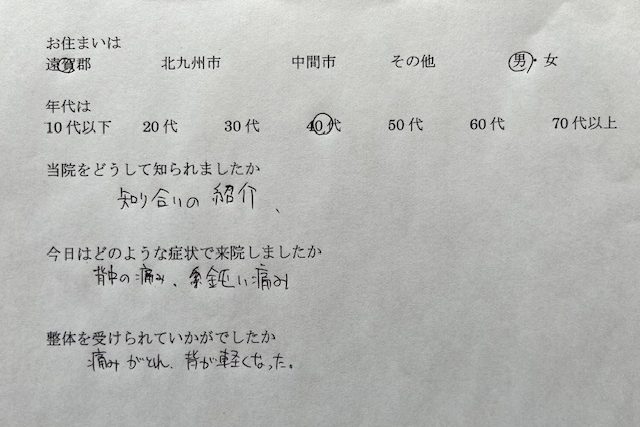 お住まいは
遠賀郡 北九州市 中間市 その他 男・女
年代は
10代以下 20代 30代 40代 50代 60代 70代以上
当院をどうして知られましたか
知り合いの紹介、
今日はどのような症状で来院しましたか
背中の痛み、鈍い痛み
整体を受けられていかがでしたか
痛みがとれ、背が軽くなった。